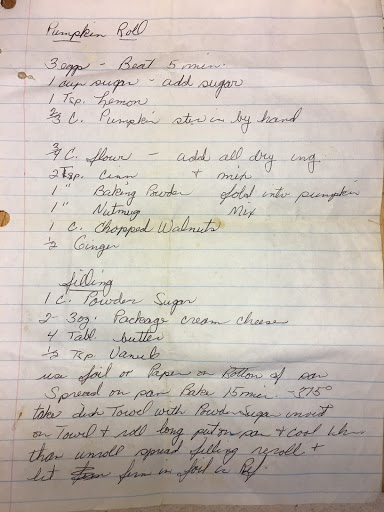 Pumpkin Roll
3 eggs - Beat 5 min.
1 cup sugar - add sugar
1 Tsp. Lemon
2/3 C. Pumpkin stir in by hand
3/4 C. flour - add all dry ing.
2 Tsp. Cinn + mix
1 " Baking Powder fold into pumpkin
1 " Nutmeg Mix
1 C. Chopped Walnuts
1/2 Ginger
filling
1 C. Powder Sugar
2- 3oz. Package cream cheese
4 Tabl. butter
1/2 Tsp. Vanila
use foil or Paper on Bottom of pan
Spread on pan Bake 15 min. - 375°
take dish Towel with Powder Sugar invert
on Towel + roll long put on pan + cool
than unroll spread filling reroll +
let firm in foil in Ref.